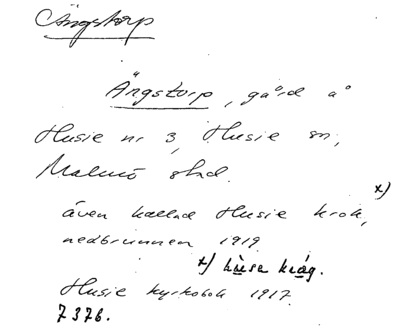 Ängstorp
Ängstorp, gård å
Husie nr 3, Husie sn,
Malmö stad.
x)
även kallad Husie krok,
nedbrunnen 1919.
x)
Husie kyrkobok 1917.
7376.